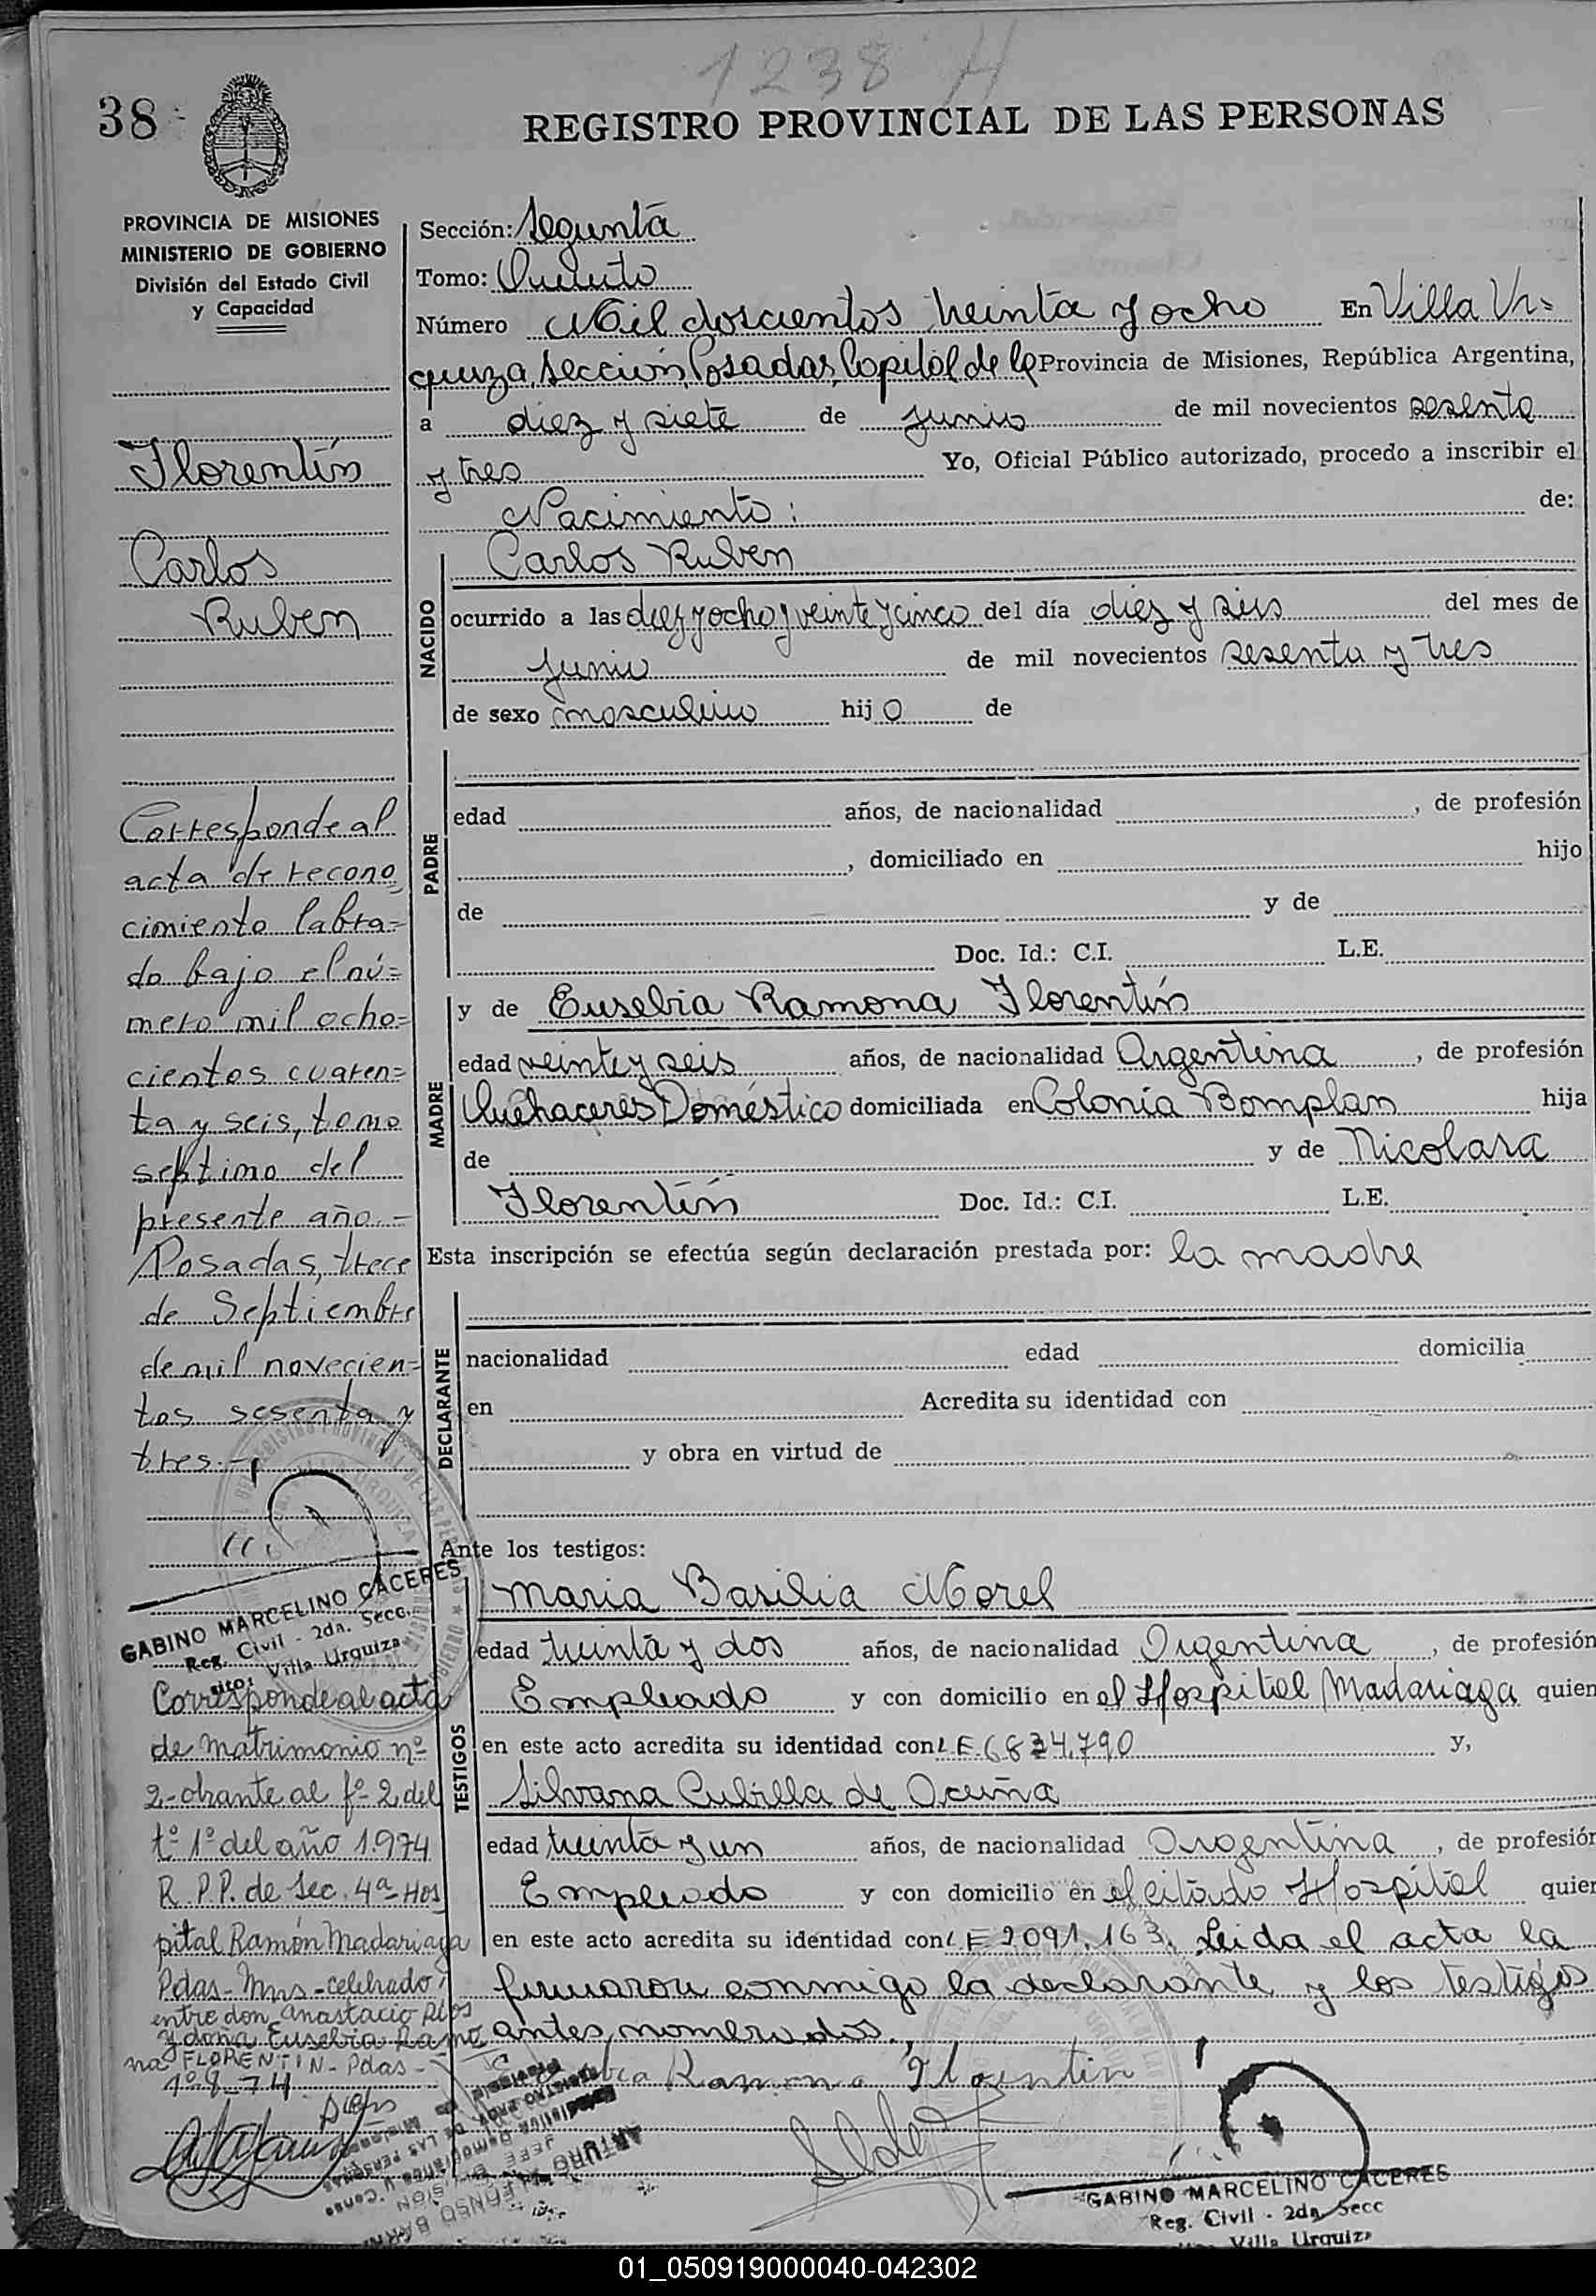 1238 H
38
REGISTRO PROVINCIAL DE LAS PERSONAS
PROVINCIA DE MISIONES
MINISTERIO DE GOBIERNO
División del Estado Civil
y Capacidad
Florentín
Carlos
Ruben
Corresponde al
acta de recono
cimiento labra=
do bajo el nú=
mero mil ocho=
cientos cuaren=
ta y seis, tomo
septimo del
presente año.-
Posadas, trece
de Septiembre
de mil novecien=
tos sesenta y
tres.-
GABINO MARCELINO CACERES
Reg. Civil - 2da. Secc.
Villa Urquiza
Corresponde al acta
de matrimonio nº
2- obrante al fº 2 del
tº 1º del año 1.974
R.P.P. de Sec. 4ª Hos
pital Ramón Madariaga
Pdas - Mns - celebrado
entre don Anastacio Ríos
y doña Eusebia Ramo
na FLORENTIN - Pdas -
1º-8-74
Sección: Segunta
Tomo: Quinto
Número Mil doscientos treinta y ocho En Villa Ur=
quiza, sección, Posadas, Capital de la Provincia de Misiones, República Argentina,
a diez y siete de junio de mil novecientos sesenta
y tres Yo, Oficial Público autorizado, procedo a inscribir el
Nacimiento: de:
NACIDO
Carlos Ruben
ocurrido a las diez y ocho y veinte y cinco del día diez y seis del mes de
junio de mil novecientos sesenta y tres
de sexo masculino hijo de
PADRE
edad años, de nacionalidad , de profesión
, domiciliado en hijo
de y de
Doc. Id.: C.I. L.E.
MADRE
y de Eusebia Ramona Florentín
edad veinte y seis años, de nacionalidad Argentina , de profesión
Quehaceres Doméstico domiciliada en Colonia Bomplan hija
de y de Nicolasa
Florentín Doc. Id.: C.I. L.E.
Esta inscripción se efectúa según declaración prestada por: la madre
DECLARANTE
nacionalidad edad domicilia
en Acredita su identidad con
y obra en virtud de
Ante los testigos:
TESTIGOS
Maria Basilia Morel
edad treinta y dos años, de nacionalidad Argentina , de profesión
Empleado y con domicilio en el Hospital Madariaga quien
en este acto acredita su identidad con L.E. 6834.790 y,
Silvana Cubilla de Acuña
edad treinta y un años, de nacionalidad Argentina , de profesión
Empleado y con domicilio en el citado Hospital quien
en este acto acredita su identidad con L.E 2091.163. Leida el acta la
firmaron conmigo la declarante y los testigos
antes nombrados.
Ramona Florentin
GABINO MARCELINO CACERES
Reg. Civil - 2da Secc
Villa Urquiza
01_050919000040-042302